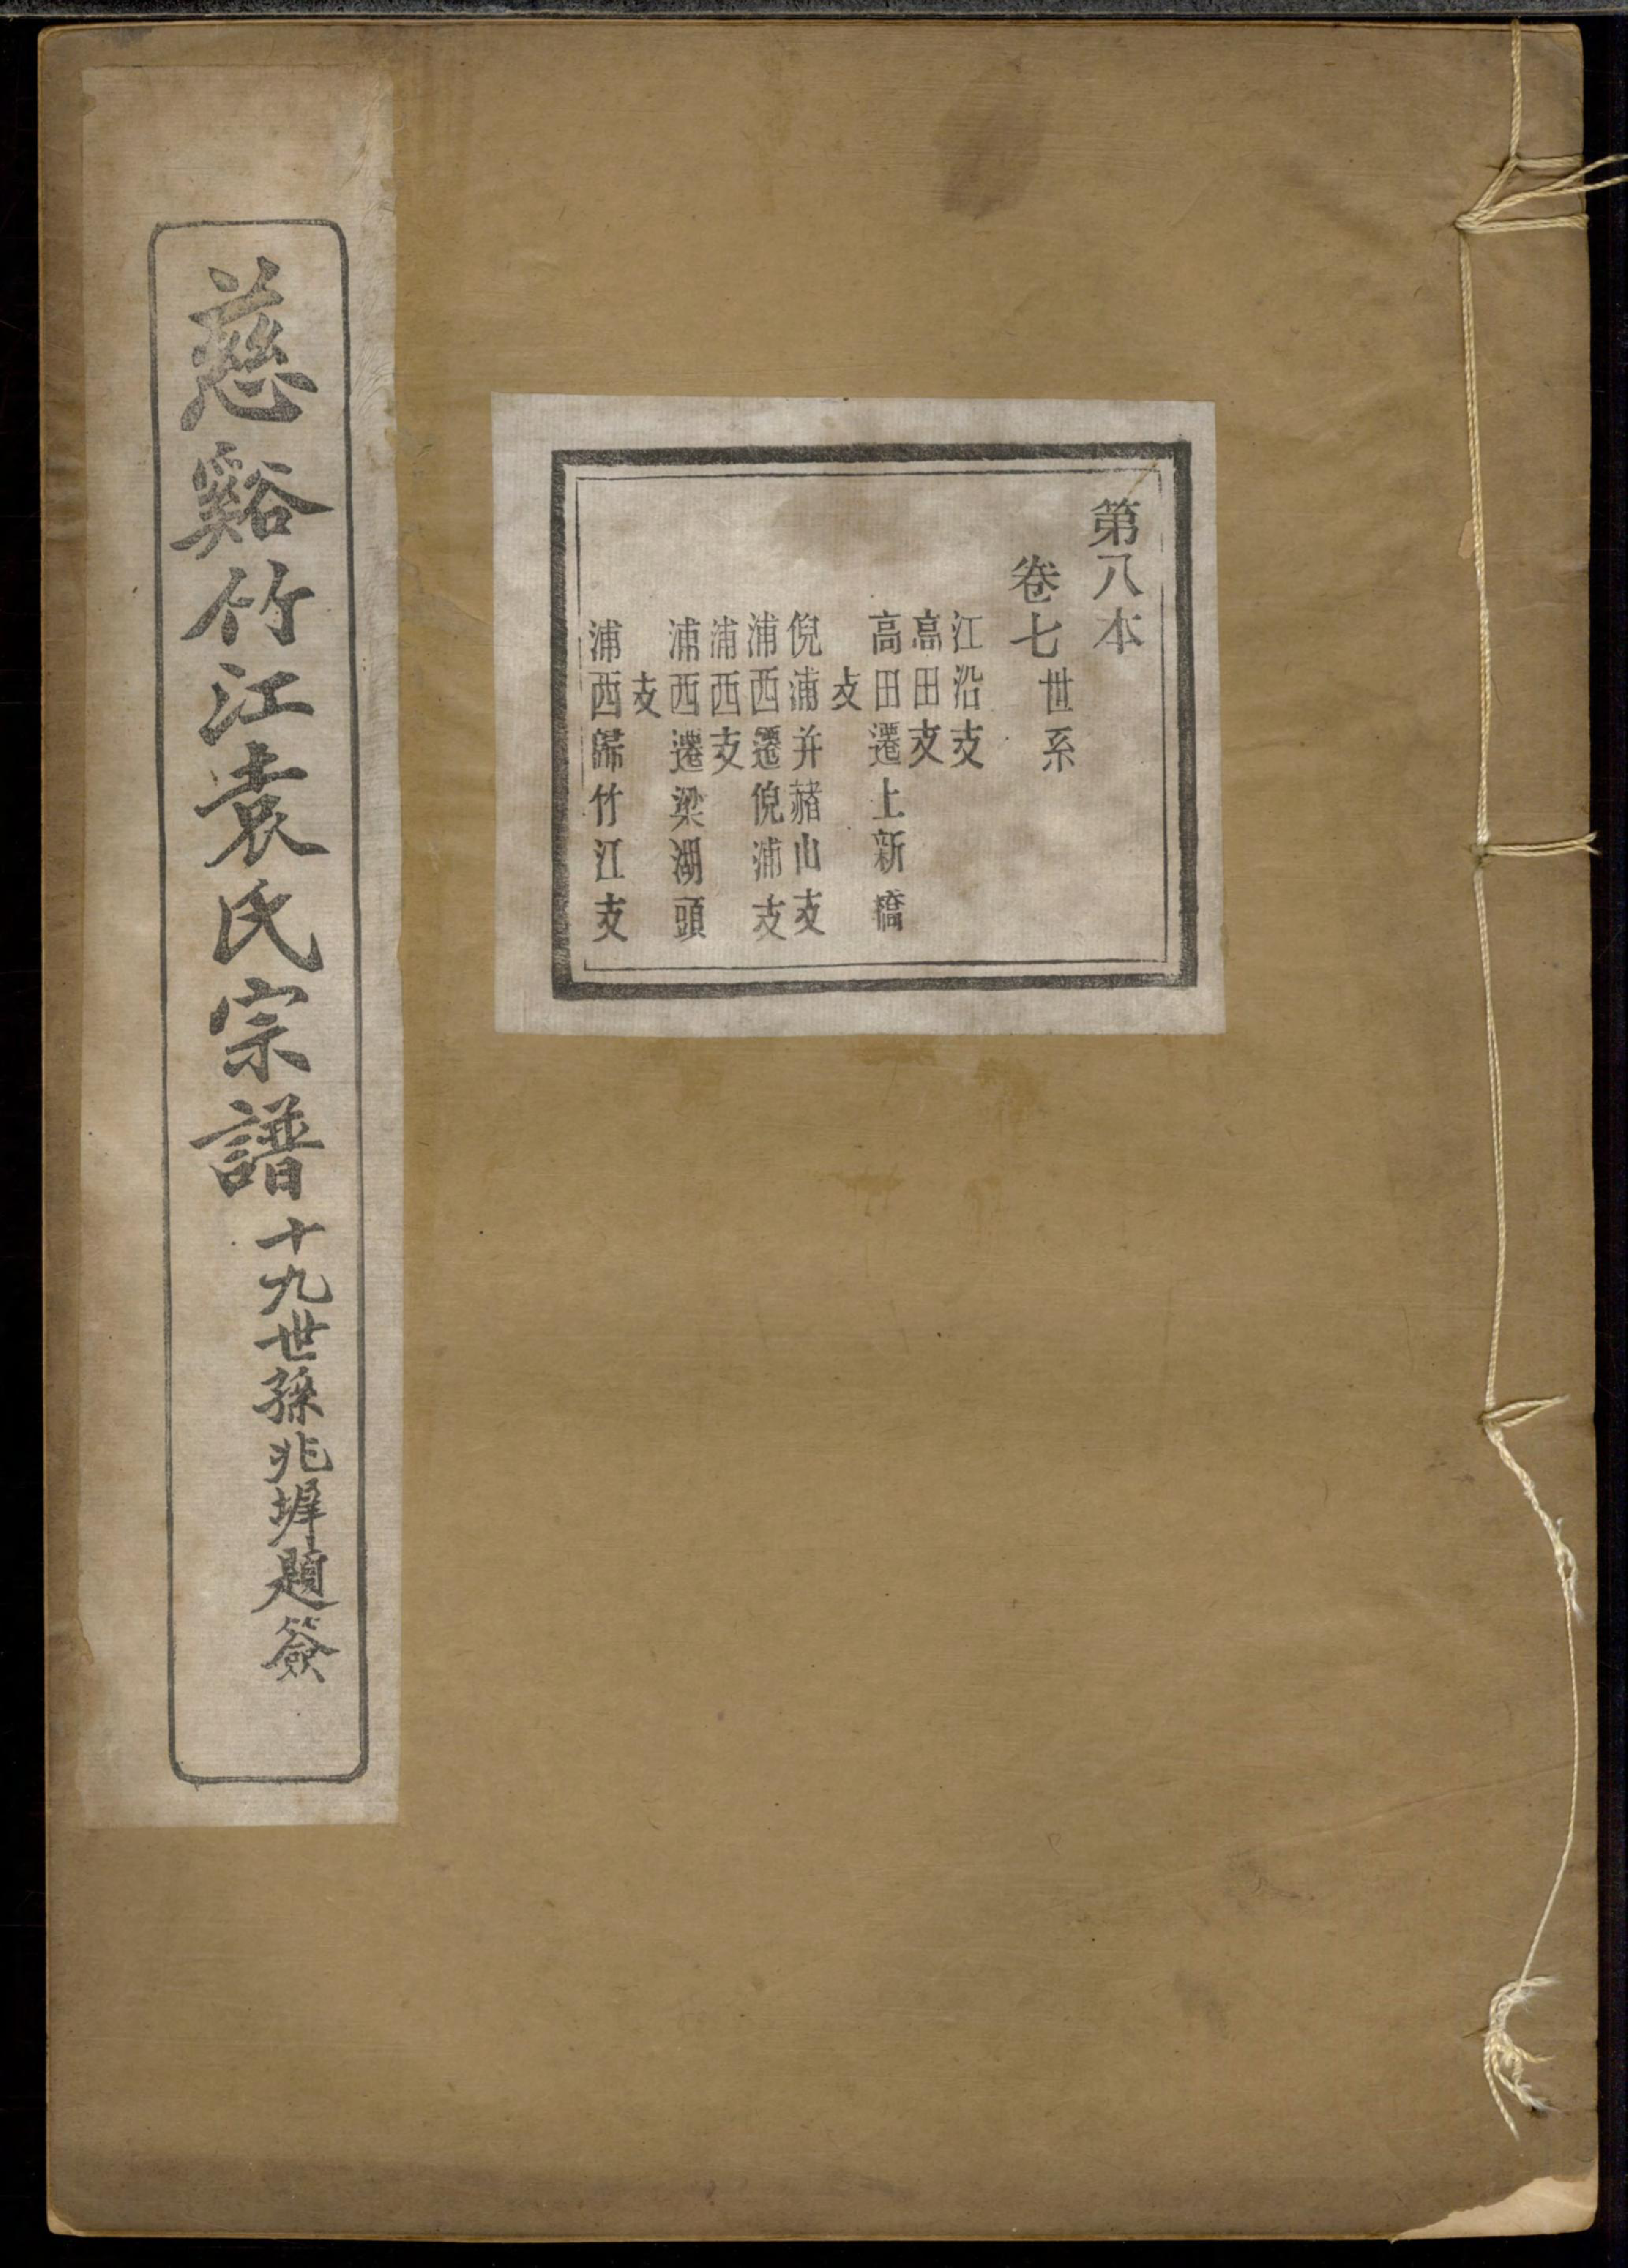 第八本
卷七世系
江沿支
高田支
高田遷上新橋
支
倪浦并赭山支
浦西遷倪浦支
浦西支
浦西遷梁湖頭
支
浦西歸竹江支
慈谿竹江袁氏宗譜
十九世孫兆墀題簽